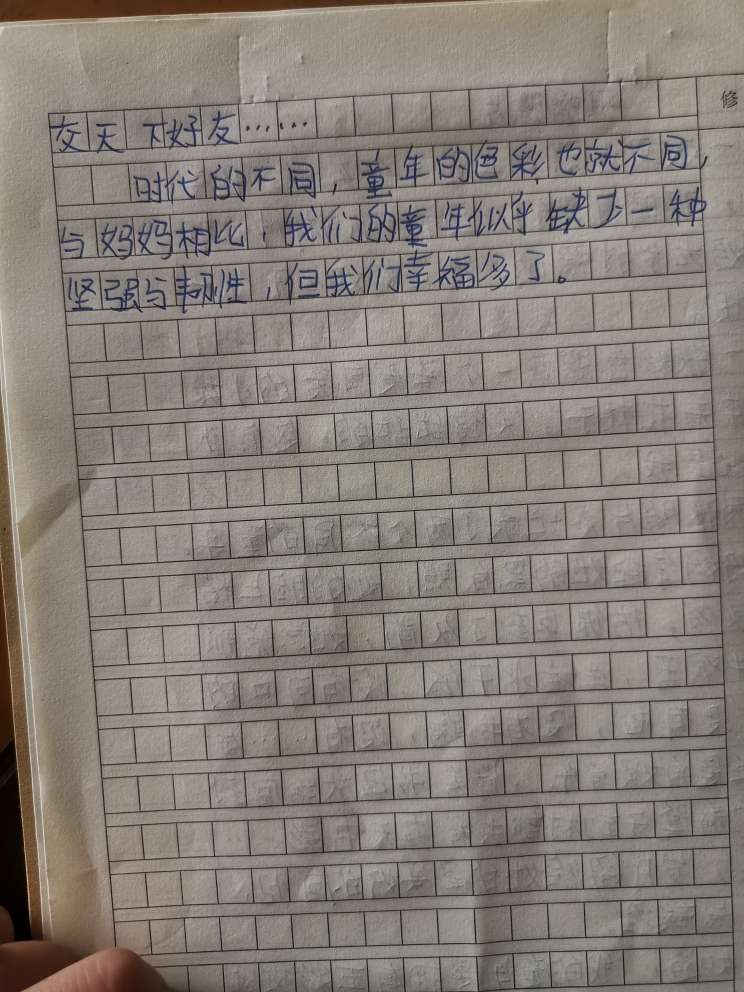 交天下好友……
时代的不同，童年的色彩也就不同，
与妈妈相比，我们的童年似乎缺少一种
坚强与韧性，但我们幸福多了。
修